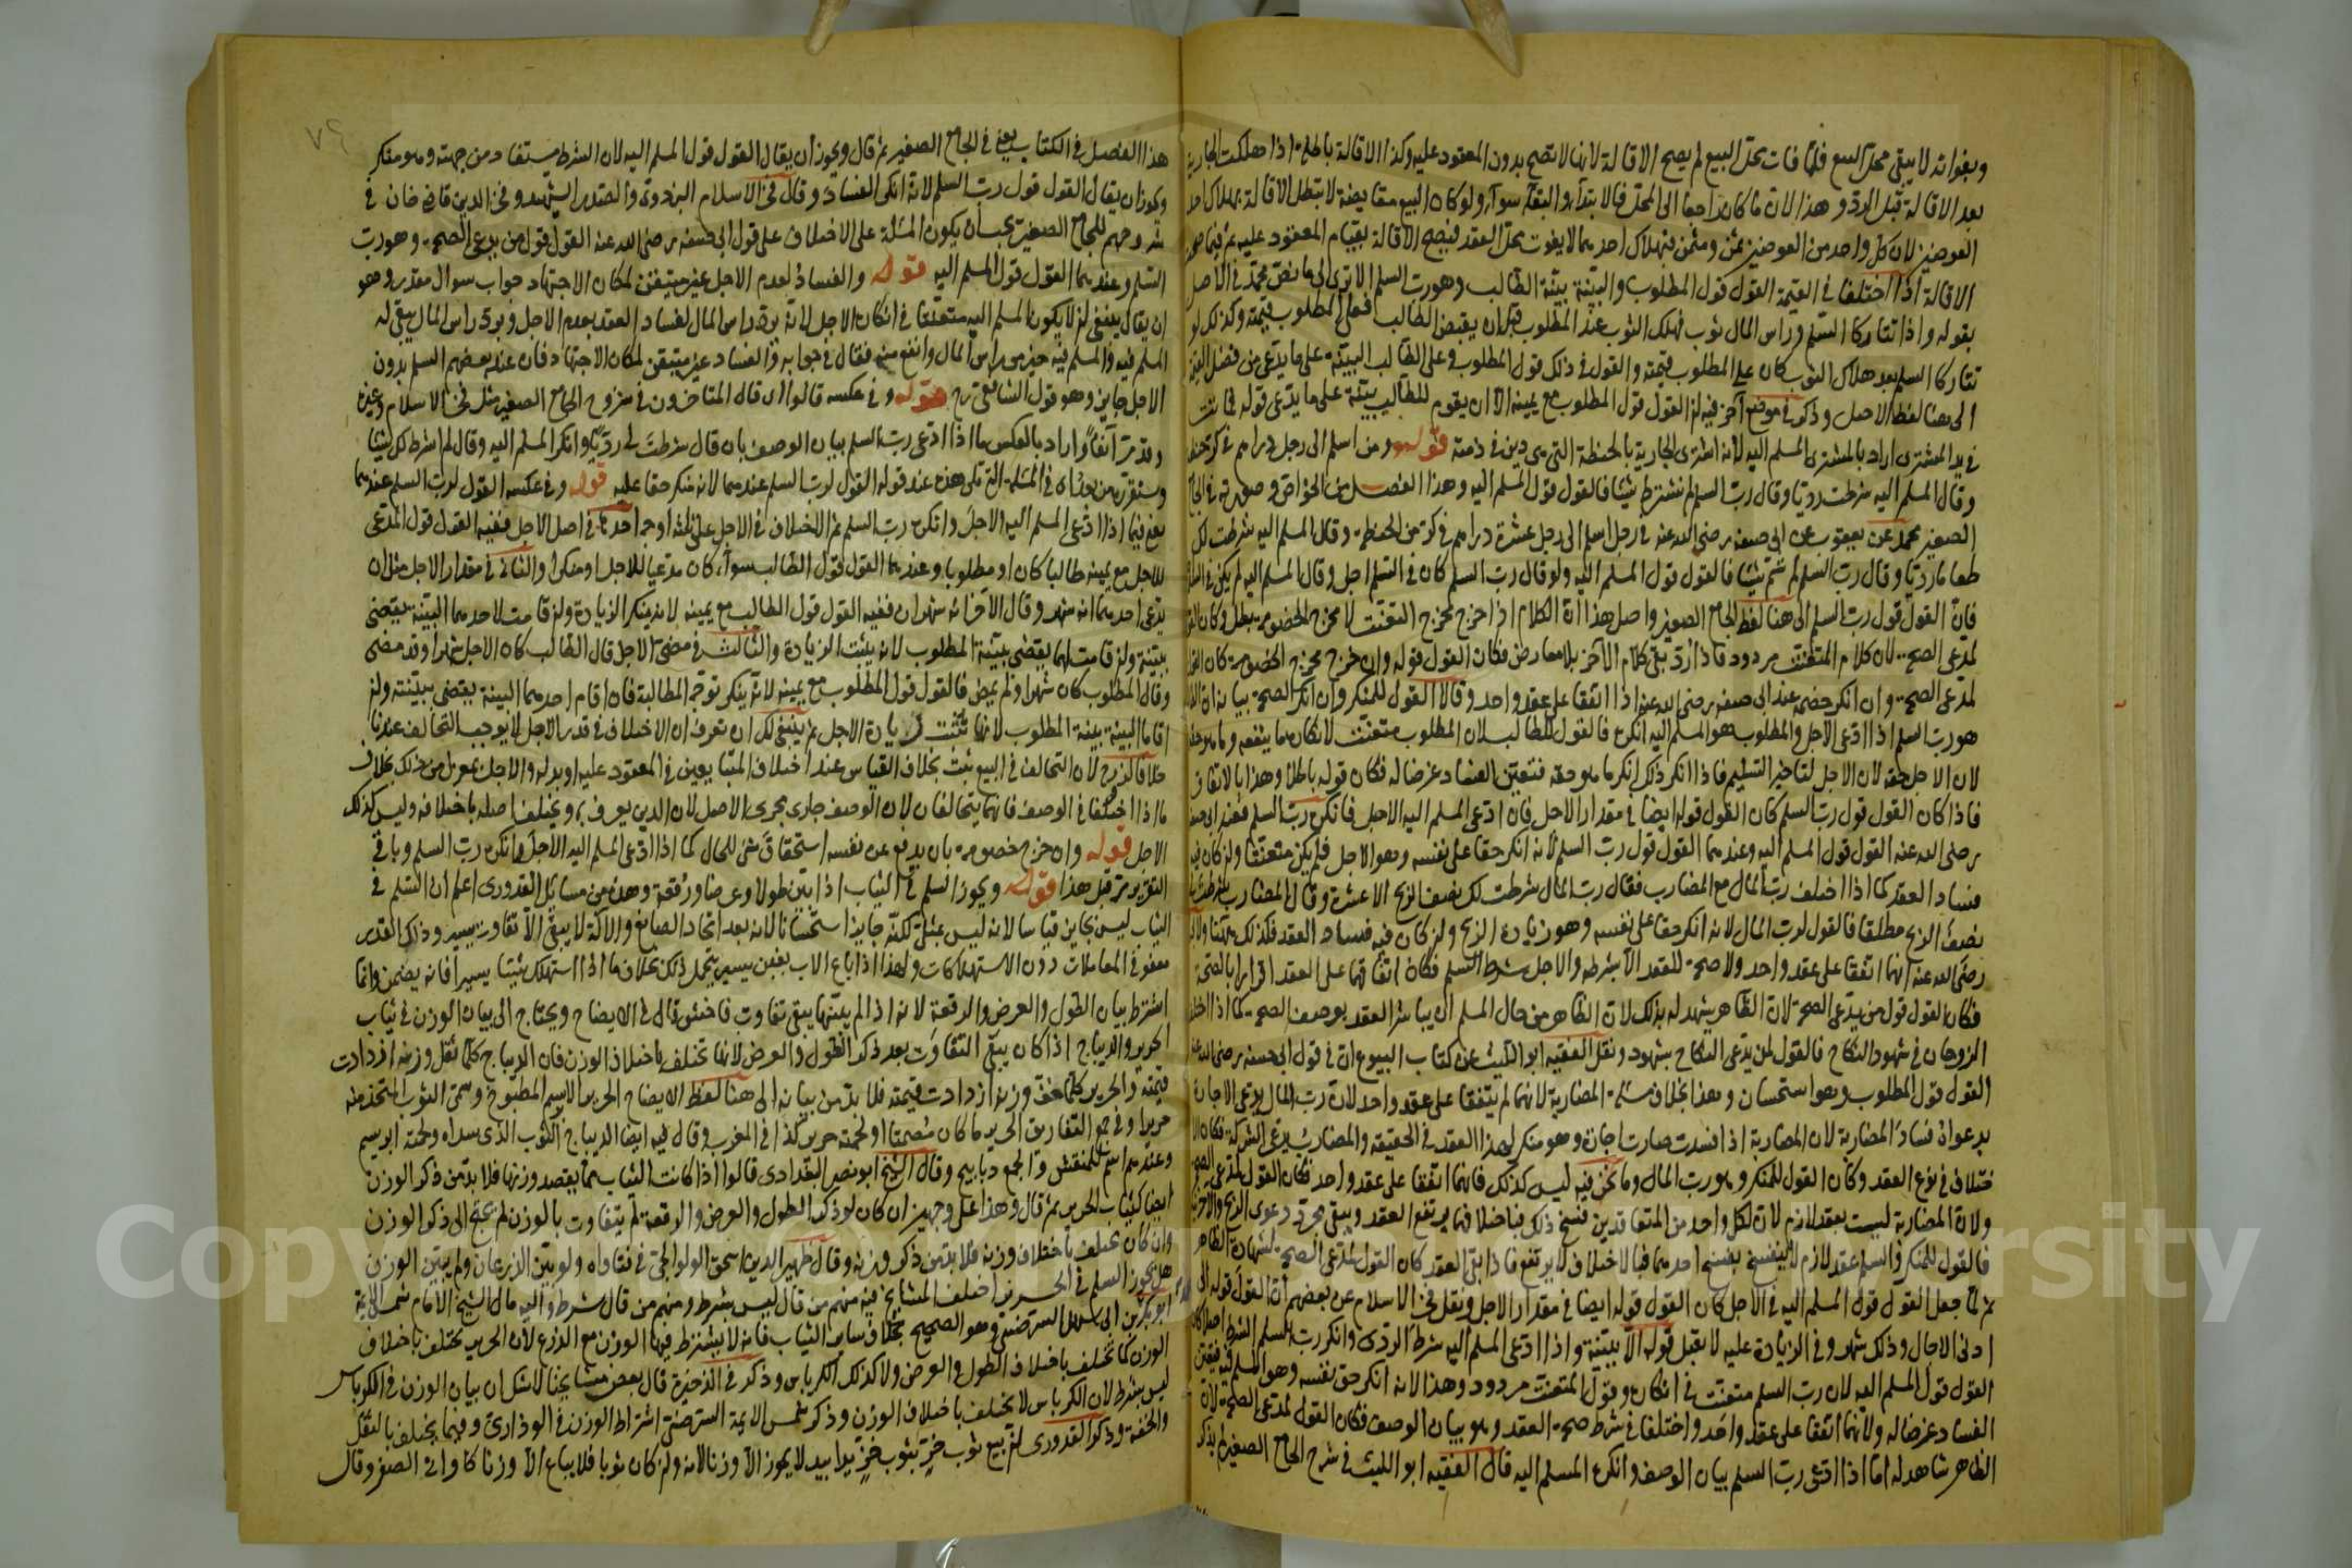 وبفواته لا يبقى محل البيع فلما فات محل البيع لم يصح الاقالة لانها لا تصح بدون المعقود عليه وكذا الاقالة باطلة اذا هلكت الجارية
بعد الاقالة قبل الرد وهذا لان ما كان راجعا الى المحل فالابتداء والبقاء سواء ولو كان البيع مقايضة لا تبطل الاقالة بهلاك احد
العوضين لان كل واحد من العوضين ثمن ومثمن فبهلاك احدهما لا يفوت محل العقد فيصح الاقالة بقيام المعقود عليه ثم فيما صحت
الاقالة اذا اختلفا في القيمة القول قول المطلوب والبينة بينة الطالب وهو رب السلم الا ترى الى ما نص محمد في الاصل
بقوله واذا تتاركا السلم ورأس المال ثوب فهلك الثوب عند المطلوب قبل ان يقبض الطالب فعلى المطلوب قيمته وكذلك لو
تتاركا السلم بعد هلاك الثوب كان على المطلوب قيمته والقول في ذلك قول المطلوب وعلى الطالب البينة على ما يدعى من فضل القيمة
الى هنا لفظ الاصل وذكر في موضع آخر فيه ان القول قول المطلوب مع يمينه الا ان يقوم للطالب بينة على ما يدعى قوله فماتت
في يد المشترى اراد بالمشترى المسلم اليه لانه اشترى الجارية بالحنطة التي هي دين في ذمته قوله ومن اسلم الى رجل دراهم في كر حنطة
وقال المسلم اليه شرطت رديا وقال رب السلم لم نشترط شيئا فالقول قول المسلم اليه وهذا الفصل من الخواص وصورته في الجامع
الصغير محمد عن يعقوب عن ابى حنيفة رضى الله عنه في رجل اسلم الى رجل عشرة دراهم في كر من الحنطة وقال المسلم اليه شرطت لك
طعاما رديا وقال رب السلم لم نسم شيئا فالقول قول المسلم اليه ولو قال رب السلم كان في السلم اجل وقال المسلم اليه لم يكن في السلم
فان القول قول رب السلم الى هنا لفظ الجامع الصغير واصل هذا ان الكلام اذا اخرج مخرج التعنت لا مخرج الخصومة بطل وكان القول
لمدعى الصحة لان كلام المتعنت مردود فاذا رد بقى كلام الآخر بلا معارض فكان القول قوله وان خرج مخرج الخصومة كان القول
لمدعى الصحة وان انكر خصمه عند ابى حنيفة رضى الله عنه اذا اتفقا على عقد واحد وقالا القول للمنكر وان انكر الصحة بيانه ان
هو رب السلم اذا ادعى الاجل والمطلوب هو المسلم اليه انكره فالقول للطالب لان المطلوب متعنت لانكاره ما ينفعه وما هو حقه
لان الاجل حقه لان الاجل لتأخير التسليم فاذا انكر ذلك انكر ما هو حقه فتعين الفساد غرضا له فكان قوله باطلا وهذا بالاتفاق
فاذا كان القول قول رب السلم كان القول قوله ايضا في مقدار الاجل فان ادعى المسلم اليه الاجل فانكره رب السلم فعند ابى حنيفة
رضى الله عنه القول قول المسلم اليه وعندهما القول قول رب السلم لانه انكر حقا على نفسه وهو الاجل فلم يكن متعنتا وان كان فيه
فساد العقد كما اذا اختلف رب المال مع المضارب فقال رب المال شرطت لك نصف الربح الا عشرة وقال المضارب بل شرطت
نصف الربح مطلقا فالقول لرب المال لانه انكر حقا على نفسه وهو زيادة الربح وان كان فيه فساد العقد فكذلك ههنا
رضى الله عنه انهما اتفقا على عقد واحد ولا صحة للعقد الا بشرطه والاجل شرط السلم فكان اتفاقهما على العقد اقرارا بالصحة
فكان القول قول من يدعى الصحة لان الظاهر يشهد له بذلك لان الظاهر من حال المسلم ان يباشر العقد بوصف الصحة كما اذا اختلف
الزوجان في شهود النكاح فالقول لمن يدعى النكاح بشهود ونقل الفقيه ابو الليث عن كتاب البيوع ان في قول ابى حنيفة رضى الله عنه
القول قول المطلوب وهو استحسان وهذا بخلاف مسئلة المضاربة لانهما لم يتفقا على عقد واحد لان رب المال يدعى الاجارة
بدعواه فساد المضاربة لان المضاربة اذا فسدت صارت اجارة وهو منكر لهذا العقد في الحقيقة والمضارب يدعى الشركة فكان
اختلاف في نوع العقد وكان القول للمنكر وهو رب المال وما نحن فيه ليس كذلك فانهما اتفقا على عقد واحد فكان القول لمدعى الصحة
ولان المضاربة ليست بعقد لازم لان لكل واحد من المتعاقدين فسخ ذلك فباختلافهما يرتفع العقد ويبقى مجرد دعوى الربح
فالقول للمنكر والسلم عقد لازم لا ينفسخ بفسخ احدهما فبالاختلاف لا يرتفع فاذا بقى العقد كان القول لمدعى الصحة لشهادة الظاهر
ثم لما جعل القول قول المسلم اليه في الاجل كان القول قوله ايضا في مقدار الاجل ونقل فخر الاسلام عن بعضهم ان القول قوله الى
ادنى الآجال وذلك شهر وفي الزيادة عليه لا يقبل قوله الا ببينة واذا ادعى المسلم اليه شرط الردى وانكر رب السلم الشرط اصلا كان
القول قول المسلم اليه لان رب السلم متعنت في انكاره وقول المتعنت مردود وهذا لانه انكر حق نفسه وهو المسلم فيه فتعين
الفساد غرضا له ولانهما اتفقا على عقد واحد واختلفا في شرط صحة العقد وهو بيان الوصف فكان القول لمدعى الصحة لان
الظاهر شاهد له اما اذا ادعى رب السلم بيان الوصف وانكره المسلم اليه قال الفقيه ابو الليث في شرح الجامع الصغير لم يذكر
٧٩
هذا الفصل في الكتاب يعنى في الجامع الصغير ثم قال ويجوز ان يقال القول قول المسلم اليه لان الشرط مستفاد من جهته وهو منكر
ويجوز ان يقال القول قول رب السلم لانه انكر الفساد وقال فخر الاسلام البزدوى والصدر الشهيد وفخر الدين قاضى خان في
شروحهم للجامع الصغير يجب ان يكون المسئلة على الاختلاف على قول ابى حنيفة رضى الله عنه القول قول من يدعى الصحة وهو رب
السلم وعندهما القول قول المسلم اليه قوله والفساد لعدم الاجل غير متيقن لمكان الاجتهاد جواب سوال مقدر وهو
ان يقال ينبغى ان لا يكون المسلم اليه متعنتا في انكاره الاجل لانه يرد رأس المال لفساد العقد بعدم الاجل وبرد رأس المال يبقى له
المسلم فيه والمسلم فيه خير من رأس المال وانفع منه فقال في جوابه والفساد غير متيقن لمكان الاجتهاد فان عند بعضهم السلم بدون
الاجل جايز وهو قول الشافعى رح قوله وفي عكسه قالوا اى قال المتأخرون في شروح الجامع الصغير مثل فخر الاسلام وغيره
وقد مر آنفا واراد بالعكس ما اذا ادعى رب السلم بيان الوصف بان قال شرطت لى رديا وانكر المسلم اليه وقال لم اشرط لك شيئا
وسنقرره من بعد في المسئلة التي تلى هذه عند قوله القول لرب السلم عندهما لانه ينكر حقا عليه قوله وفي عكسه القول لرب السلم عندهما
يعنى فيما اذا ادعى المسلم اليه الاجل وانكره رب السلم ثم الاختلاف في الاجل على ثلثة اوجه احدها في اصل الاجل ففيه القول قول المدعى
للاجل مع يمينه طالبا كان او مطلوبا وعندهما القول قول الطالب سواء كان مدعيا للاجل او منكرا والثانى في مقدار الاجل مثل ان
يدعى احدهما انه شهر وقال الآخر انه شهران ففيه القول قول الطالب مع يمينه لانه ينكر الزيادة وان قامت لاحدهما البينة يقضى
ببينته وان قامت لهما يقضى ببينة المطلوب لانه يثبت الزيادة والثالث في مضى الاجل قال الطالب كان الاجل شهرا وقد مضى
وقال المطلوب كان شهرا ولم يمض فالقول قول المطلوب مع يمينه لانه ينكر توجه المطالبة فان اقام احدهما البينة يقضى ببينته وان
اقاما البينة بينة المطلوب لانها تثبت زيادة الاجل ثم ينبغى لك ان تعرف ان الاختلاف في قدر الاجل لا يوجب التحالف عندنا
خلافا لزفر لان التحالف في البيع ثبت بخلاف القياس عند اختلاف المتبايعين في المعقود عليه او بدله والاجل بمعزل من ذلك بخلاف
ما اذا اختلفا في الوصف فانهما يتحالفان لان الوصف جارى مجرى الاصل لان الدين يعرف به ويختلف اصله باختلافه وليس كذلك
الاجل قوله وان خرج خصومة بان يدفع عن نفسه استحقاق شئ للحال كما اذا ادعى المسلم اليه الاجل وانكره رب السلم وباقى
التقرير مر قبل هذا قوله ويجوز السلم في الثياب اذا بين طولا وعرضا ورقعة وهذه من مسائل القدورى اعلم ان السلم في
الثياب ليس بجايز قياسا لانه ليس بمثلى لكنه جايز استحسانا لانه بعد اتحاد الصانع والآلة لا يبقى الا تفاوت يسير وذلك القدر
معفو في المعاملات دون الاستهلاكات ولهذا اذا باع الاب بغبن يسير يتحمل ذلك بخلاف ما اذا استهلك شيئا يسيرا فانه يضمن وانما
اشترط بيان الطول والعرض والرقعة لانه اذا لم يبينها يبقى تفاوت فاحش قال في الايضاح ويحتاج الى بيان الوزن في ثياب
الحرير والديباج اذا كان يبقى التفاوت بعد ذكر الطول والعرض لانها تختلف باختلاف الوزن فان الديباج كلما ثقل وزنه ازدادت
قيمته والحرير كلما خف وزنه ازدادت قيمته فلا بد من بيانه الى هنا لفظ الايضاح الحرير الابريسم المطبوخ وسمى الثوب المتخذ منه
حريرا وفي جمع التفاريق الحرير ما كان مصمتا او لحمته حرير كذا في المغرب وقال فيه ايضا الديباج الثوب الذى سداه ولحمته ابريسم
وعندهم اسم للمنقش والجمع ديابيج وقال الشيخ ابو نصر البغدادى قالوا اذا كانت الثياب مما يقصد وزنها فلا بد من ذكر الوزن
ايضا كثياب الحرير ثم قال وهذا على وجهين ان كان لو ذكر الطول والعرض والرقعة لم يتفاوت بالوزن لم يحتج الى ذكر الوزن
وان كان يختلف باختلاف وزنه فلا بد من ذكر وزنه وقال ظهير الدين اسحق الولوالجى في فتاواه ولو بين الذرعان ولم يبين الوزن
هل يجوز السلم في الحرير اختلف المشايخ فيه منهم من قال ليس بشرط ومنهم من قال شرط واليه مال الشيخ الامام شمس الائمة
ابو بكر بن ابى سهل السرخسى وهو الصحيح بخلاف سائر الثياب فانه لا يشترط فيها الوزن مع الذرع لان الحرير يختلف باختلاف
الوزن كما يختلف باختلاف الطول والعرض ولا كذلك الكرباس وذكر في الذخيرة قال بعض مشايخنا لا شك ان بيان الوزن في الكرباس
ليس بشرط لان الكرباس لا يختلف باختلاف الوزن وذكر شمس الائمة السرخسى اشتراط الوزن في الوذارى وفيما يختلف بالثقل
والخفة وذكر القدورى ان بيع ثوب خز بثوب خز يدا بيد لا يجوز الا وزنا لانه وان كان ثوبا فلا يباع الا وزنا كاوانى الصفر وقال